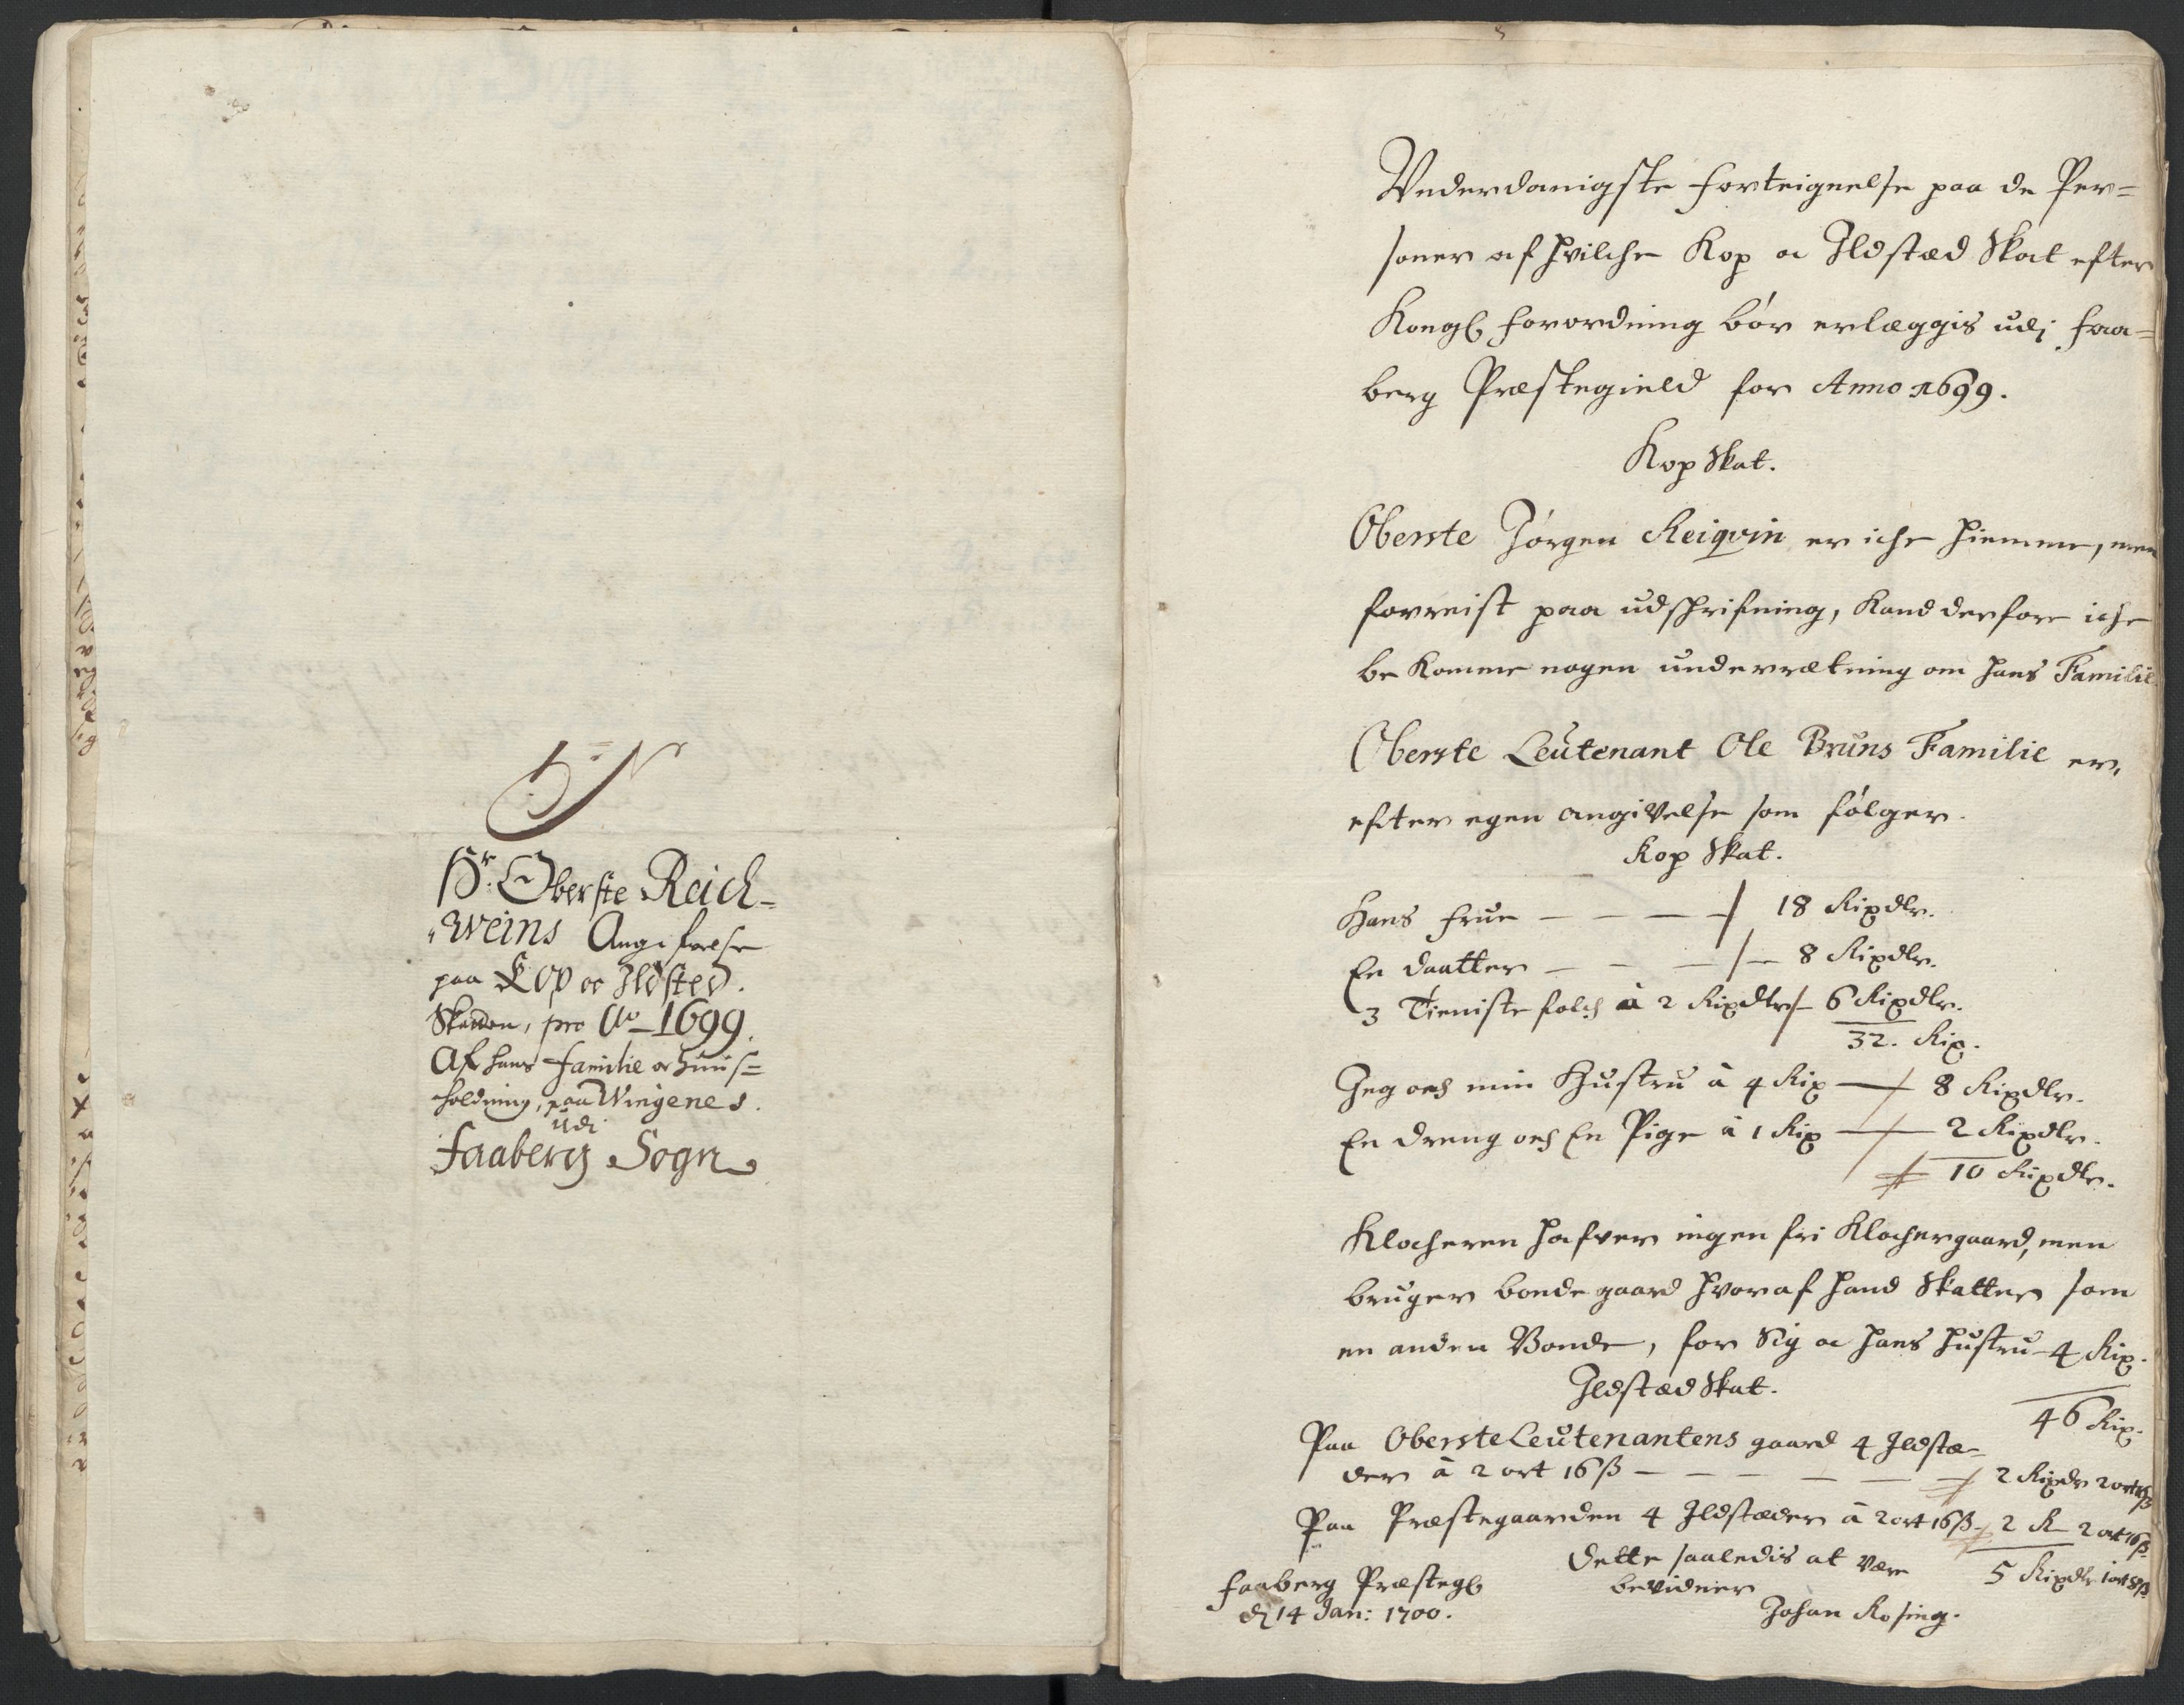 Hr. Oberste Reich-
weins Angifvelse
paa Kop oc Ildsted.
Skatten, pro Ao 1699.
Af hans familie oc huus=
holdning, paa Wingenes.
udi
faaberg Sogn
Vnderdanigste forteignelse paa de Per=
soner af hvilche Kop oc Ildstæd Skat efter
Kongl forordning bør erlæggis udj faa=
berg Præstegield for Anno 1699.
Kop Skat.
Oberste Jørgen Reiqvin er iche hiemme, men
forreist paa udschrifning, kand derfore iche
bekomme nogen underrætning om hans Familie
Oberste Leutenant Ole Bruns Familie er,
efter egen angivelse som følger.
Kop Skat.
Hans frue — — — — 18 Rixdlr.
En daatter — — — — 8 Rixdlr.
3 Tieniste folch à 2 Rixdlr — 6 Rixdlr.
32. Rix.
Jeg och min Hustru à 4 Rix — 8 Rixdlr.
En dreng och En Pige à 1 Rix — 2 Rixdlr.
10 Rixdlr.
Klocheren hafver ingen fri Klochergaard, men
bruger bonde gaard hvoraf hand Skatter som
en anden Bonde, for Sig oc hans hustru 4 Rix.
46 Rix.
Ildstæd Skat.
Paa Oberste Leutenantens gaard 4 Ildstæ-
der à 2 ort 16 ß — — — — — — 2 Rixdr 2 ort 16 ß
Paa Præstegaarden 4 Ildstæder à 2 ort 16 ß 2 R 2 ort 16 ß
5 Rixdlr 1 ort 8 ß
Dette saaledis at være
bevidner
faaberg Præstegl
dj 14 Jan: 1700.
Johan Rosing.